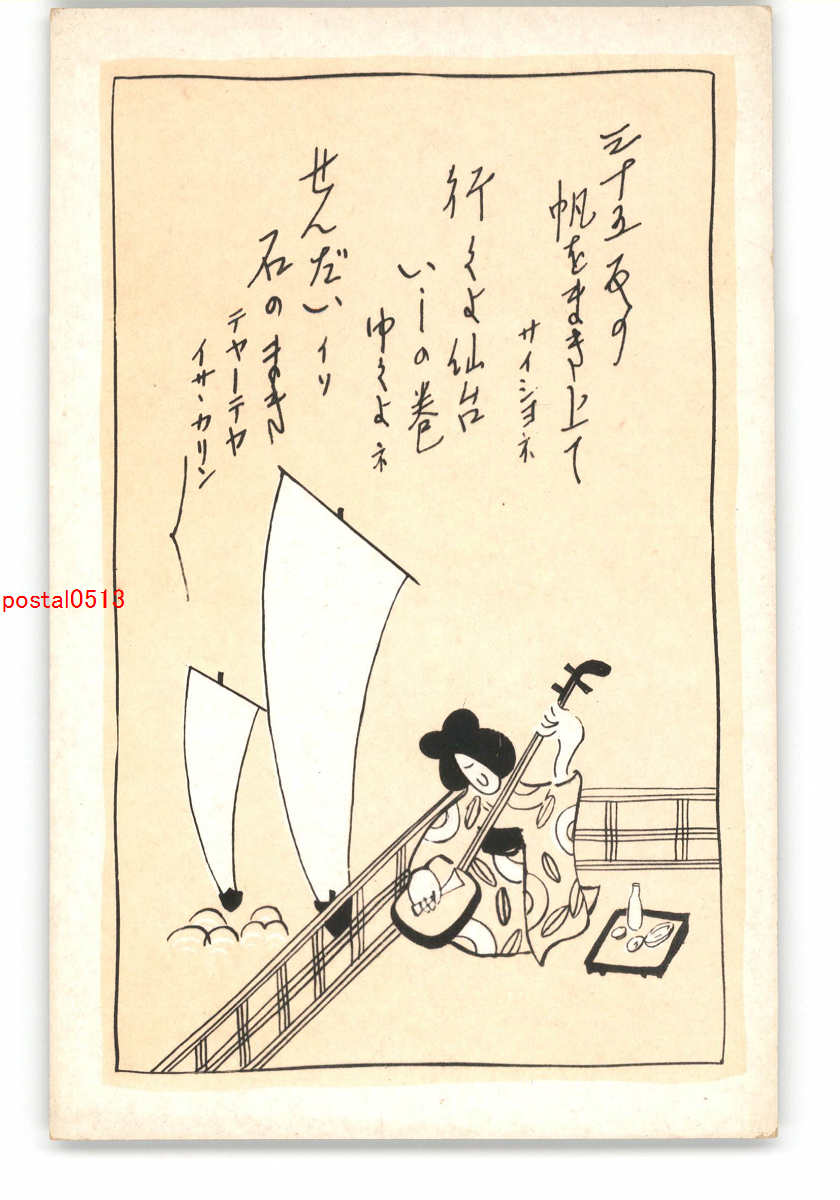 三十五反の
帆をまき上て
サイシヨネ
行くよ仙台
いしの巻
ゆくよネ
せんだいイソ
石のまき
テヤーテヤ
イサ・カリン
postal0513